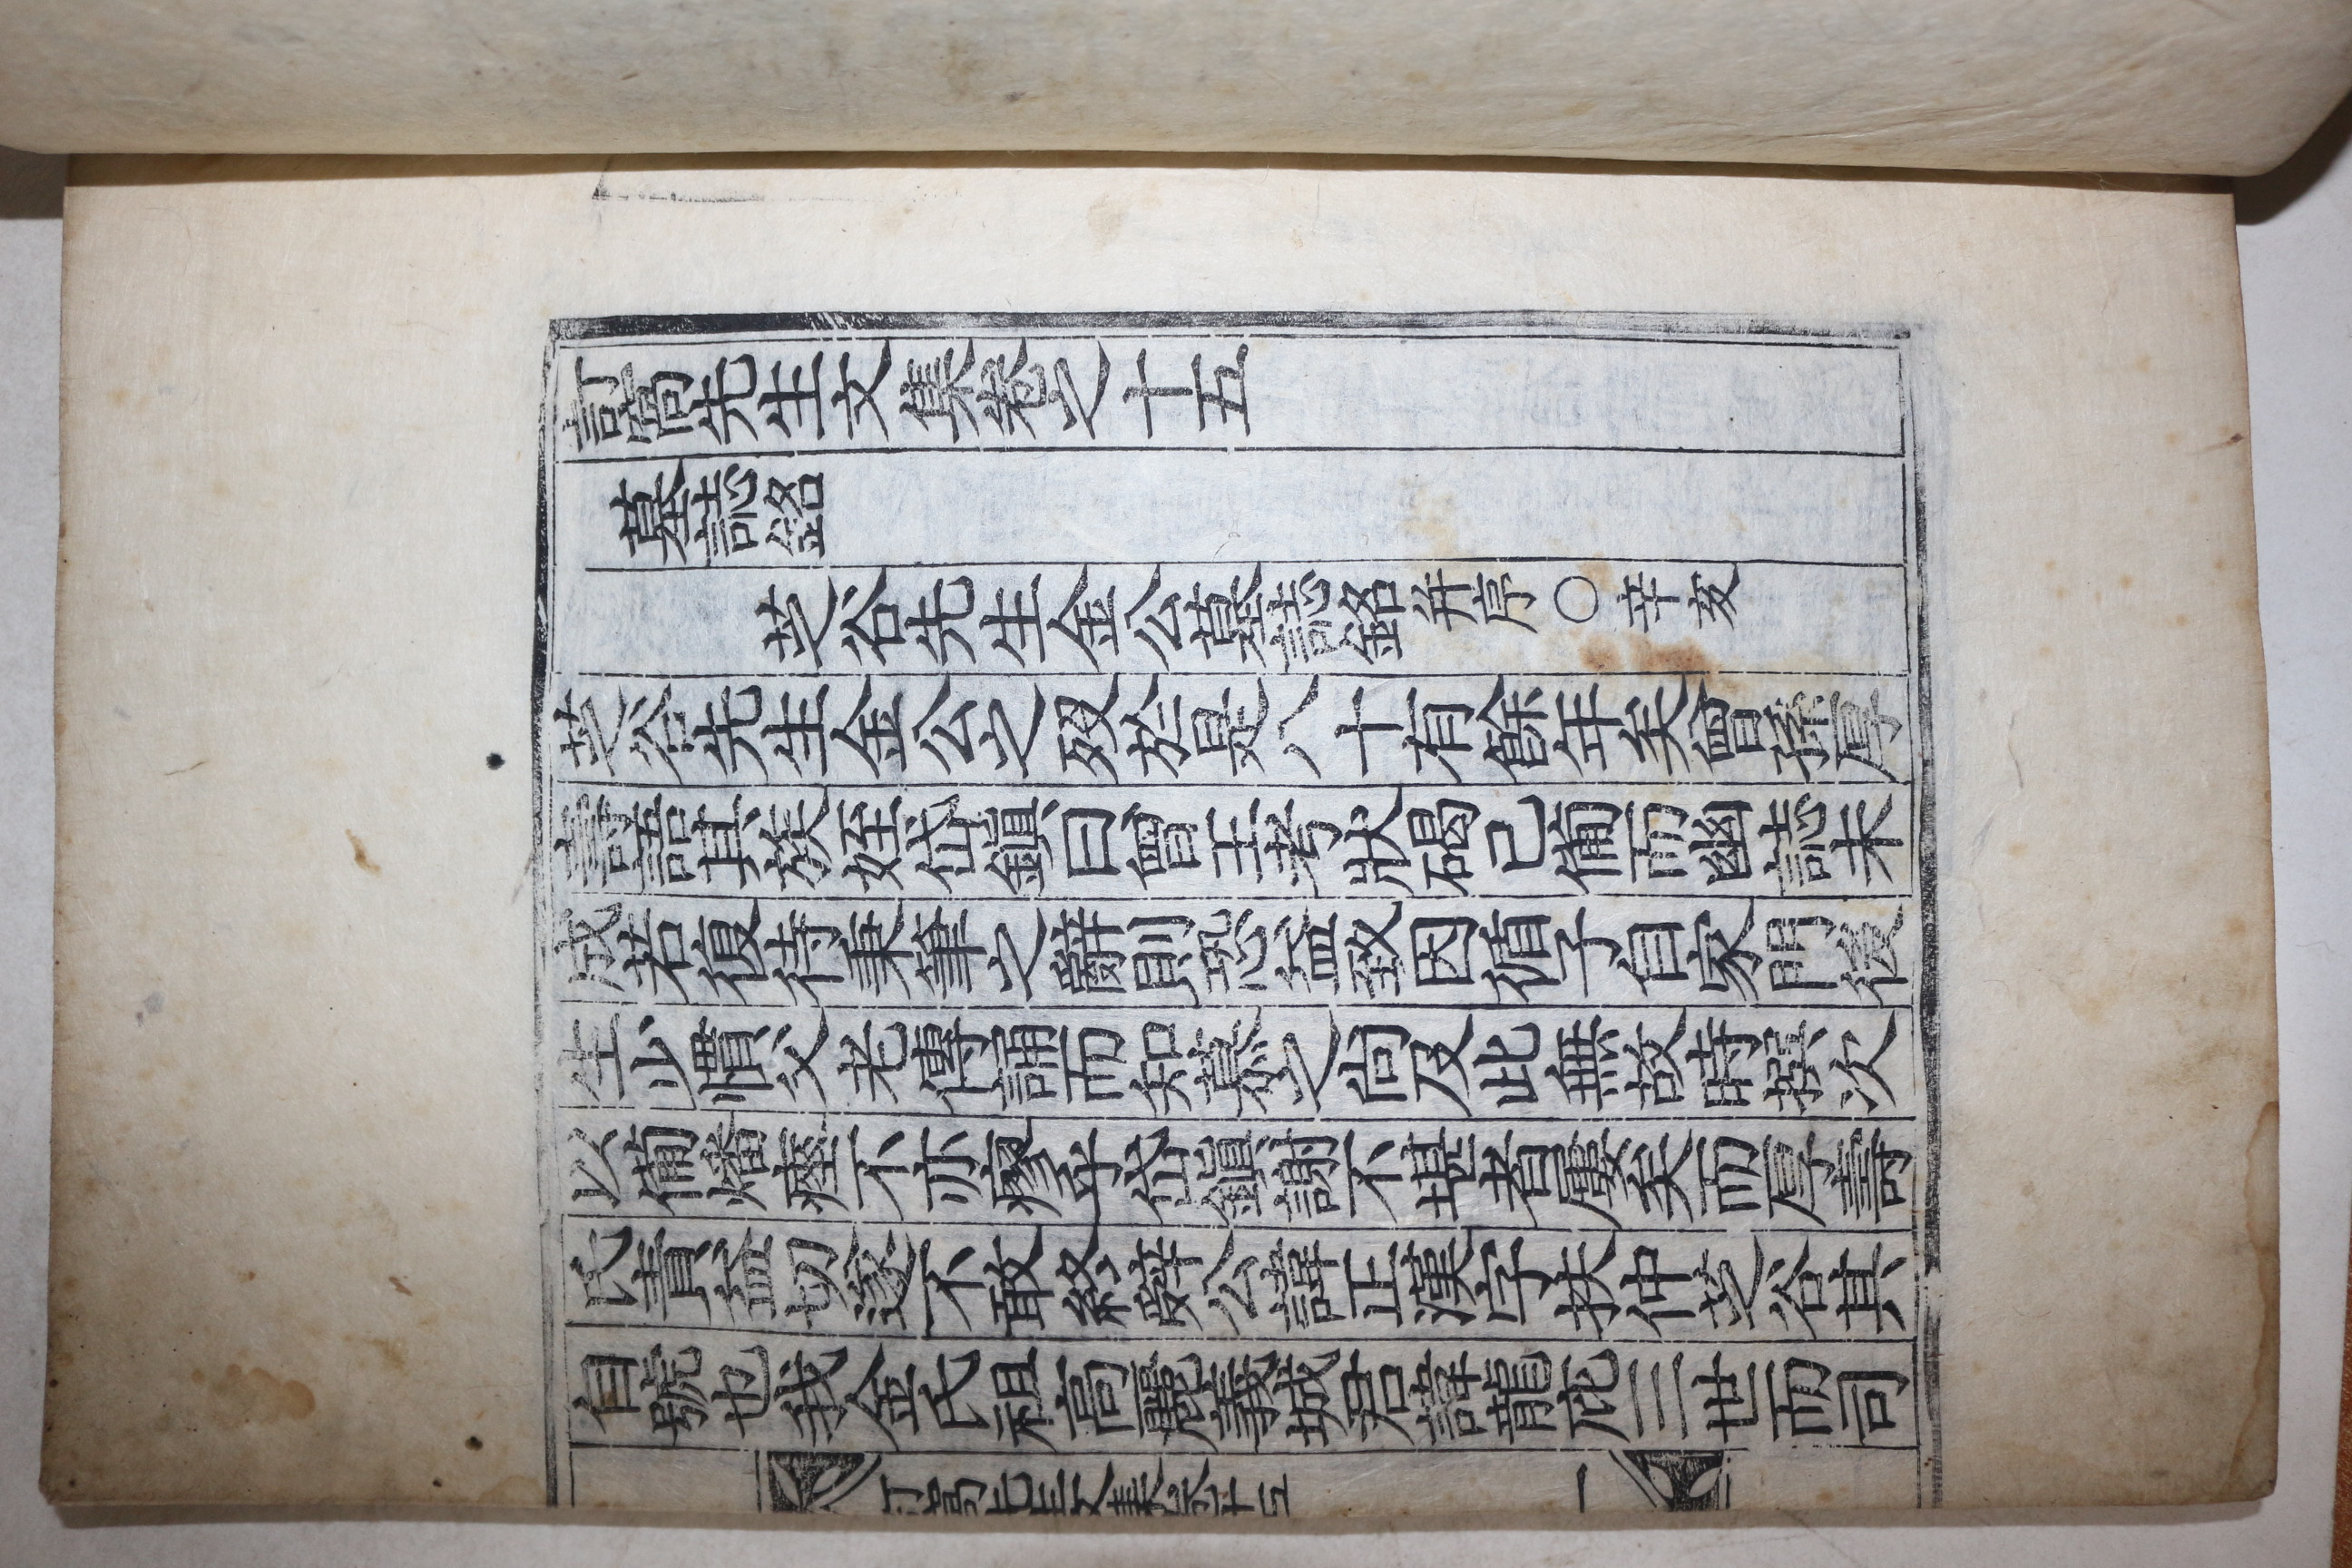 訂窩先生文集卷之十五
墓誌銘
芝谷先生金公墓誌銘 幷序○辛亥
芝谷先生金公之歿於是八十有餘年矣曾孫厚
壽語其族姪岱鎭曰曾王考狀碣已備而幽誌未
成若復待秉筆之辭則恐益致因循子自家門後
生少慣父老傳誦而知慕之向及此無故時撰次
以備燔瘞不亦可乎岱鎭謝不堪者屢矣而厚壽
氏責益切遂不敢終辭公諱正漢字扶仲芝谷其
自號也我金氏祖高麗義城君諱龍庇三世而司
訂窩先生文集卷十五 一